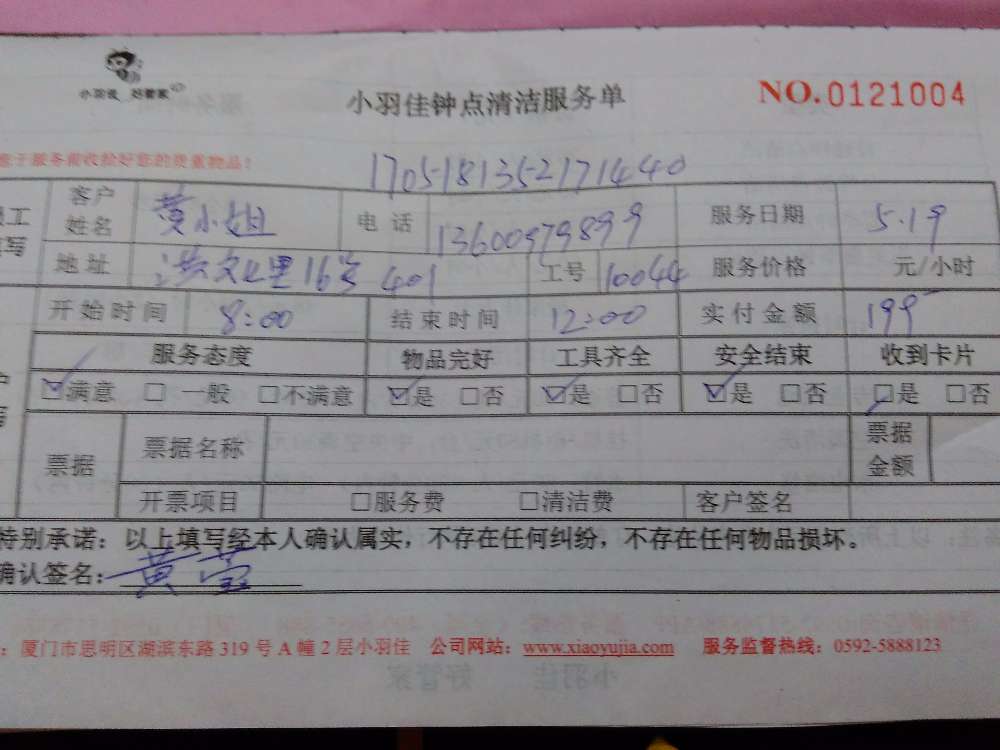 小羽佳 好管家
小羽佳钟点清洁服务单
NO.0121004
于服务前收拾好您的贵重物品！
170518135217171440
客户姓名 黄小姐 电话 13600979899 服务日期 5.19
地址 文化里16号 401 工号 10044 服务价格 元/小时
开始时间 8:00 结束时间 12:00 实付金额 199
服务态度 物品完好 工具齐全 安全结束 收到卡片
☑满意 □一般 □不满意 ☑是 □否 ☑是 □否 ☑是 □否 ☑是 □否
票据 票据名称 票据金额
开票项目 □服务费 □清洁费 客户签名
特别承诺：以上填写经本人确认属实，不存在任何纠纷，不存在任何物品损坏。
确认签名：黄莹
：厦门市思明区湖滨东路319号A幢2层小羽佳 公司网站：www.xiaoyujia.com 服务监督热线：0592-5888123